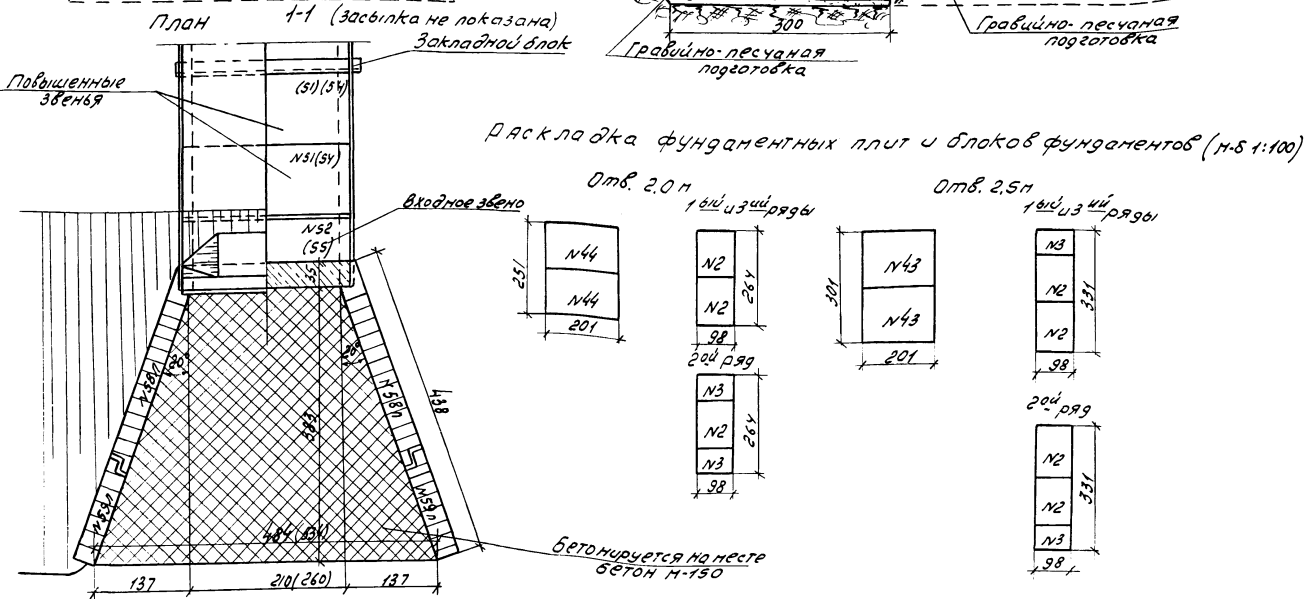 План
1-1 (Засыпка не показана)
Закладной блок
Повышенные
звенья
(51)(54)
N51(54)
Входное звено
N52
(55)
35
20°
20°
N58л
N58п
N59л
N59п
383
438
484 (534)
137
210(260)
137
Бетонируется на месте
бетон М-150
300
Гравийно-песчаная
подготовка
Гравийно-песчаная
подготовка
Раскладка фундаментных плит и блоков фундаментов (м-б 1:100)
Отв. 2,0 м
1ый и 3ий ряды
251
N44
N44
201
N2
N2
264
98
2ой ряд
N3
N2
N3
264
98
Отв. 2,5м
1ый и 3ий ряды
301
N43
N43
201
N3
N2
N2
331
98
2ой ряд
N2
N2
N3
331
98